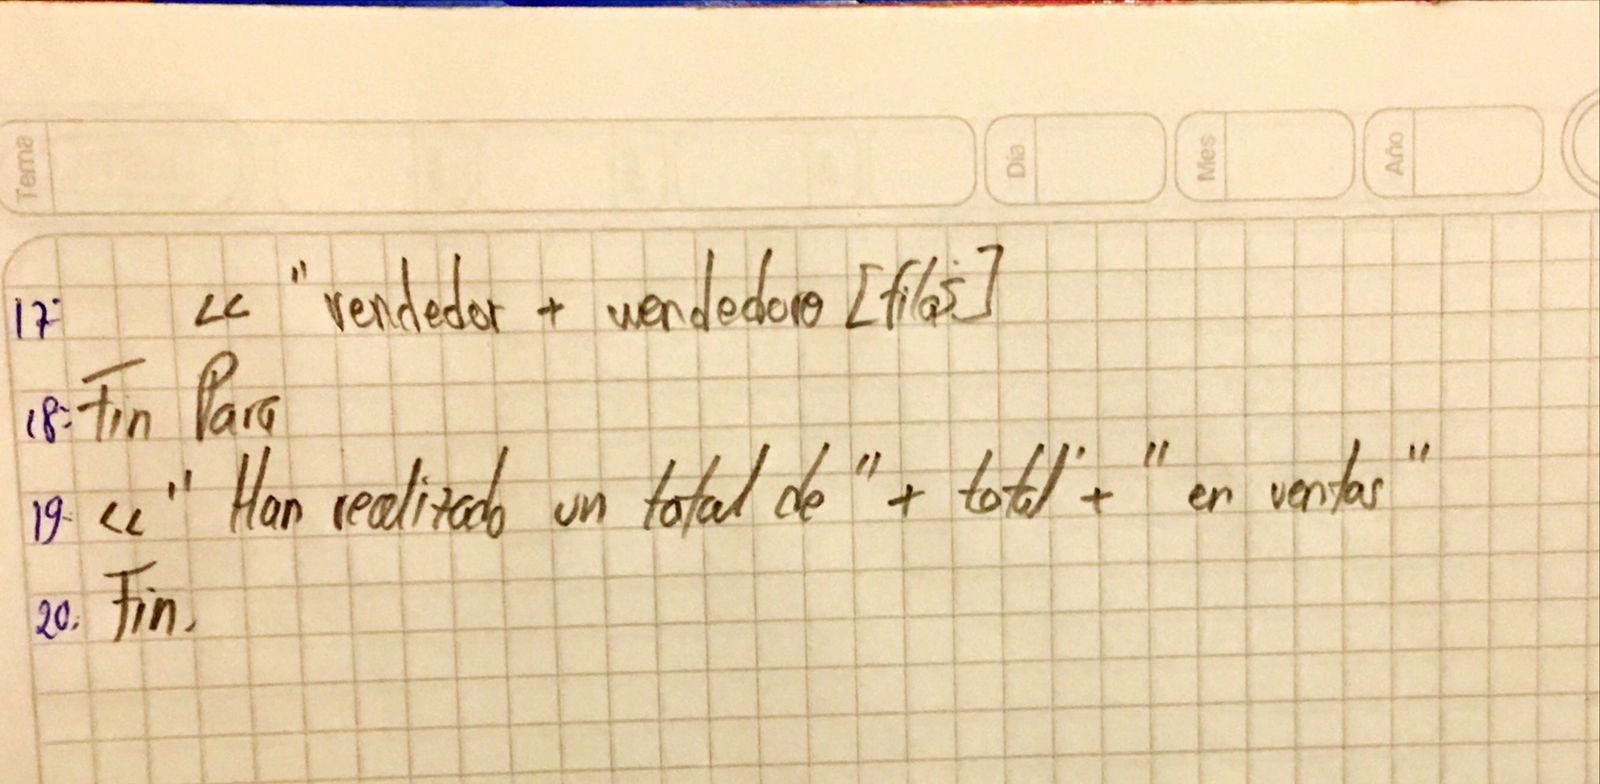 Tema Día Mes Año
17: << "vendedor + vendedore [filas]
18: Fin Para
19- <<" Han realizado un total de " + total + " en ventas "
20. Fin.